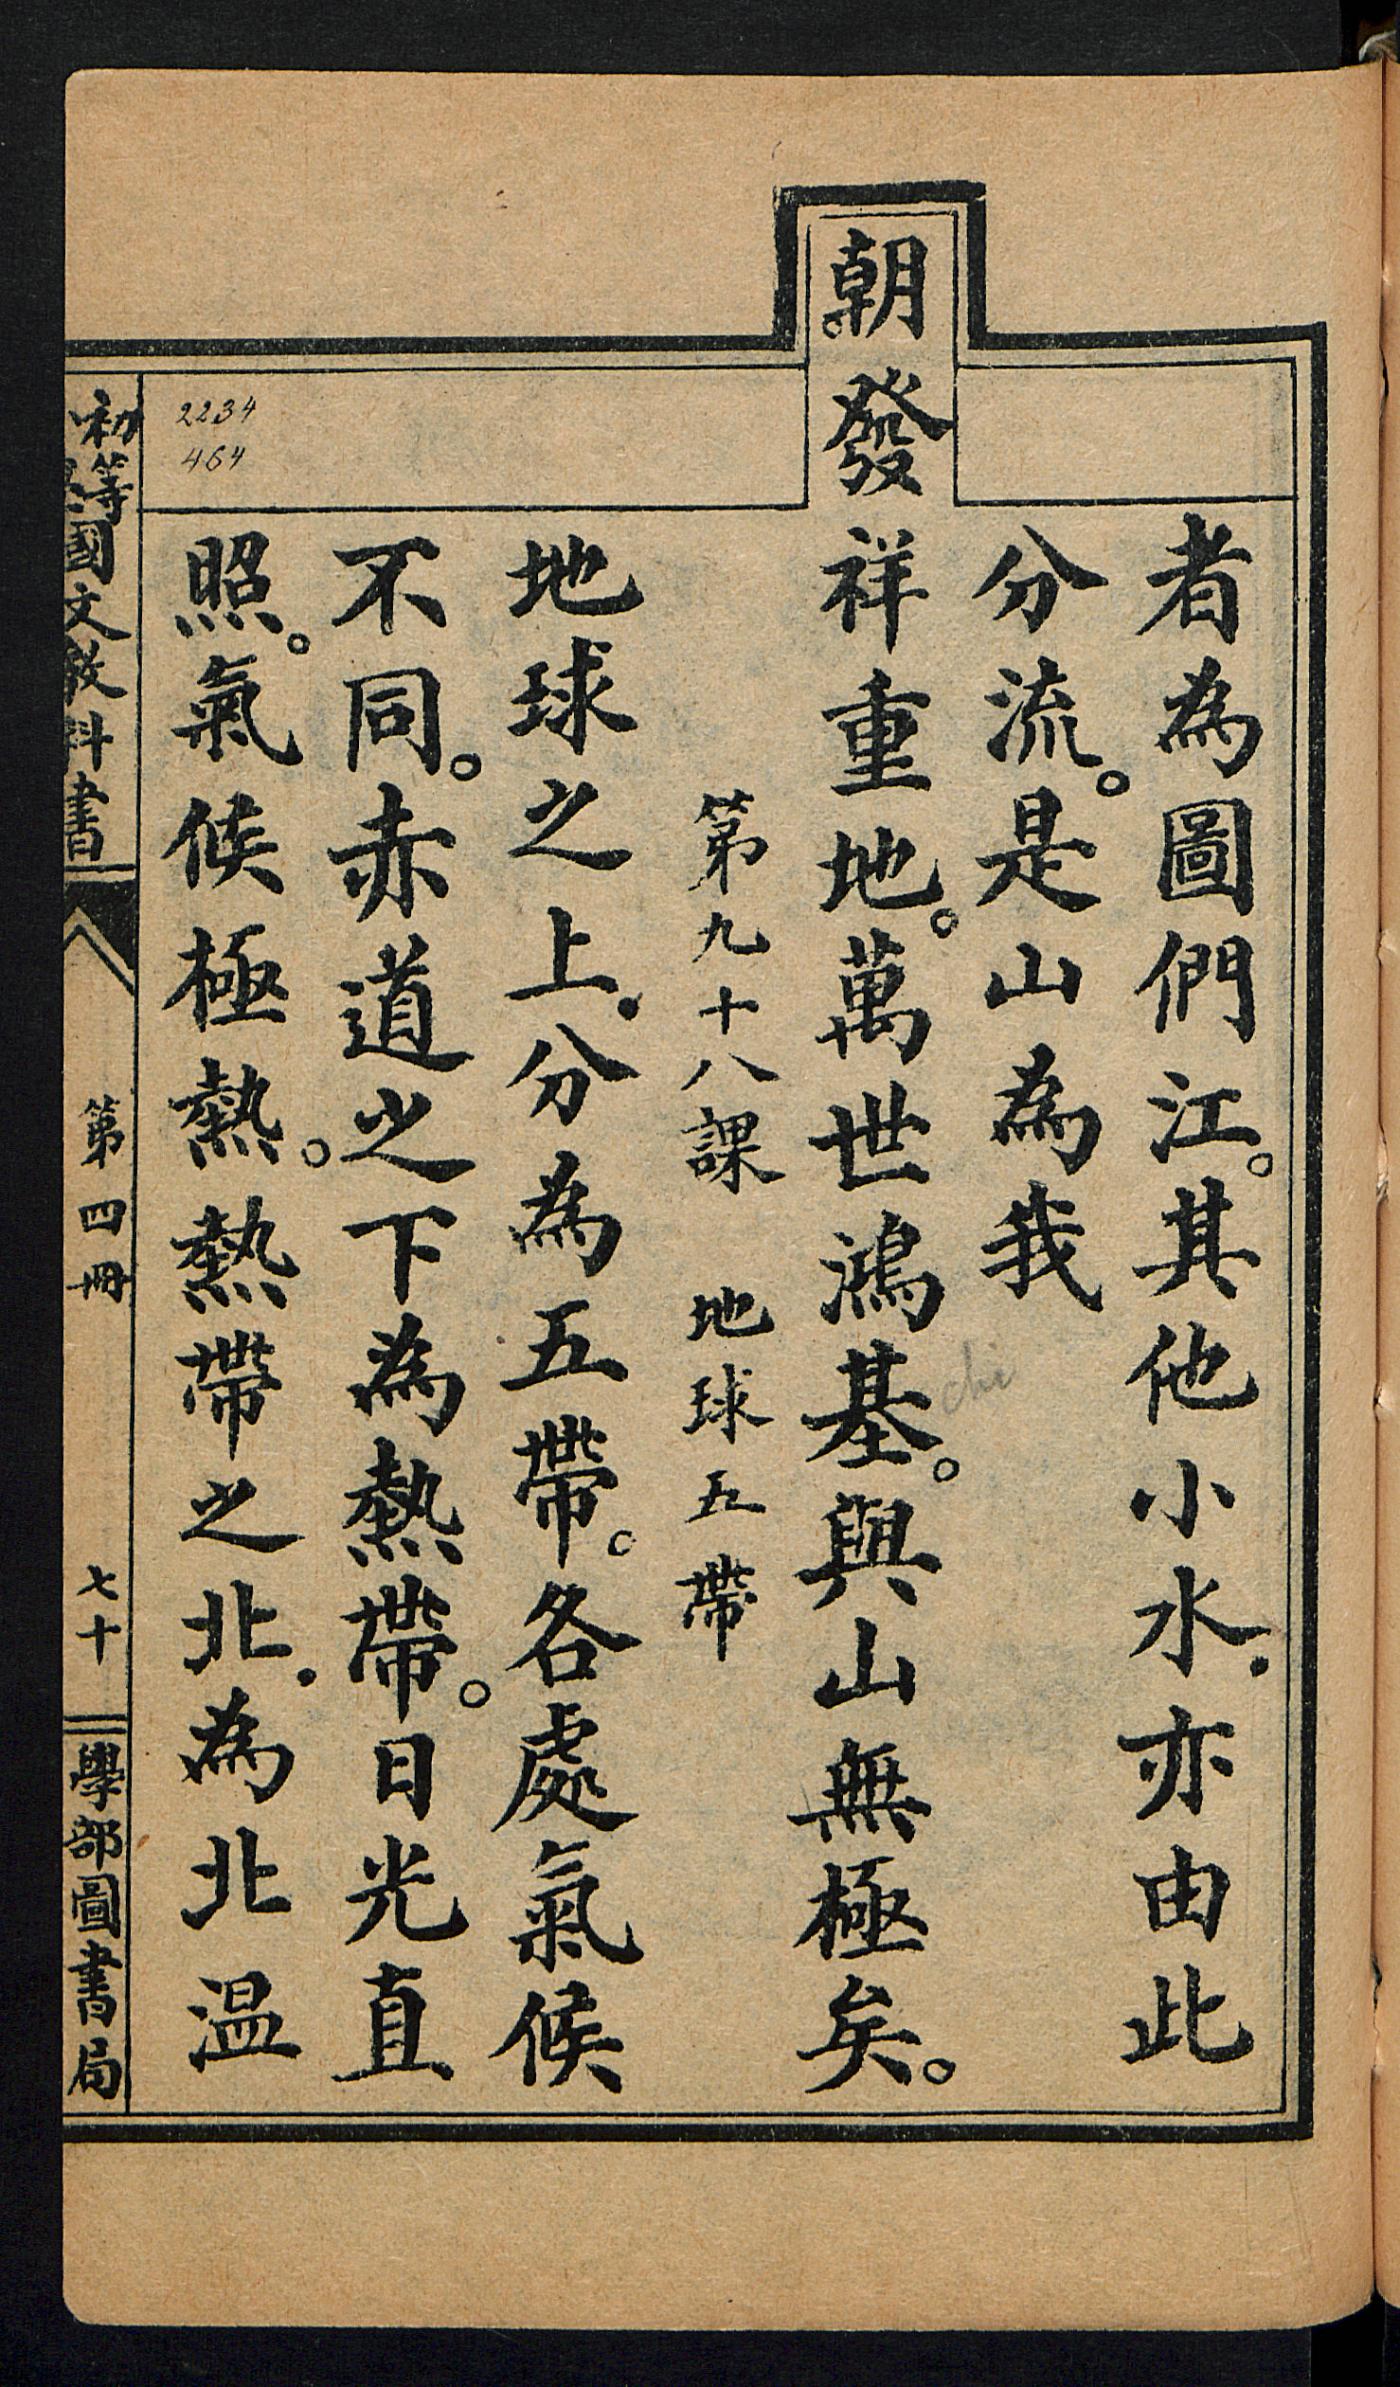 者為圖們江。其他小水．亦由此
分流。是山為我
朝。發祥重地。萬世鴻基。與山無極矣。
chi
第九十八課 地球五帶
地球之上．分為五帶。各處氣候
不同。赤道之下為熱帶。日光直
照。氣候極熱。熱帶之北．為北温
2234
464
初等國文教科書
第四冊
七十
學部圖書局